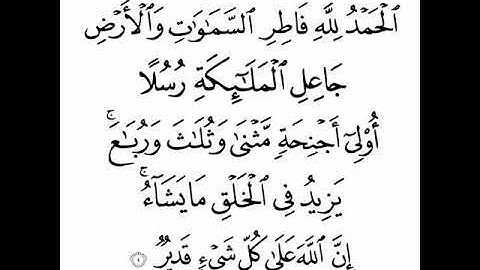 ٱلْحَمْدُ لِلَّهِ فَاطِرِ ٱلسَّمَٰوَٰتِ وَٱلْأَرْضِ
جَاعِلِ ٱلْمَلَٰٓئِكَةِ رُسُلًا
أُو۟لِىٓ أَجْنِحَةٍ مَّثْنَىٰ وَثُلَٰثَ وَرُبَٰعَ ۚ
يَزِيدُ فِى ٱلْخَلْقِ مَا يَشَآءُ ۚ
إِنَّ ٱللَّهَ عَلَىٰ كُلِّ شَىْءٍ قَدِيرٌ ۝١